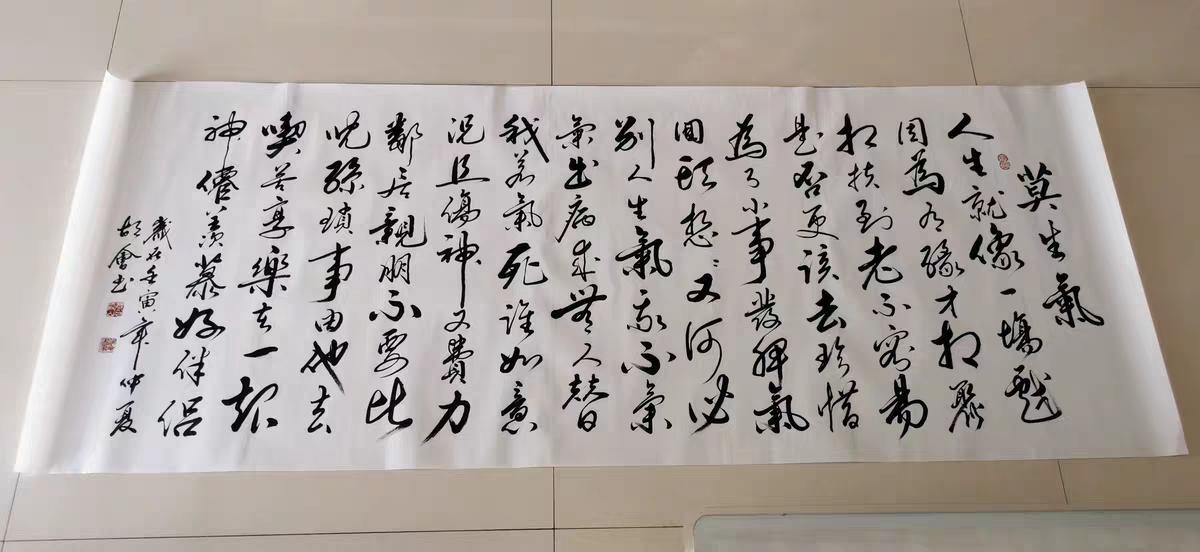 莫生氣
人生就像一場戲
因為有緣才相聚
相扶到老不容易
是否更該去珍惜
為了小事發脾氣
回頭想〻又何必
別人生氣我不氣
氣出病來無人替
我若氣死誰如意
況且傷神又費力
鄰居親朋不要比
兒孫瑣事由他去
喫苦享樂在一起
神僊羨慕好伴侶
歲次壬寅年仲夏
胡會书